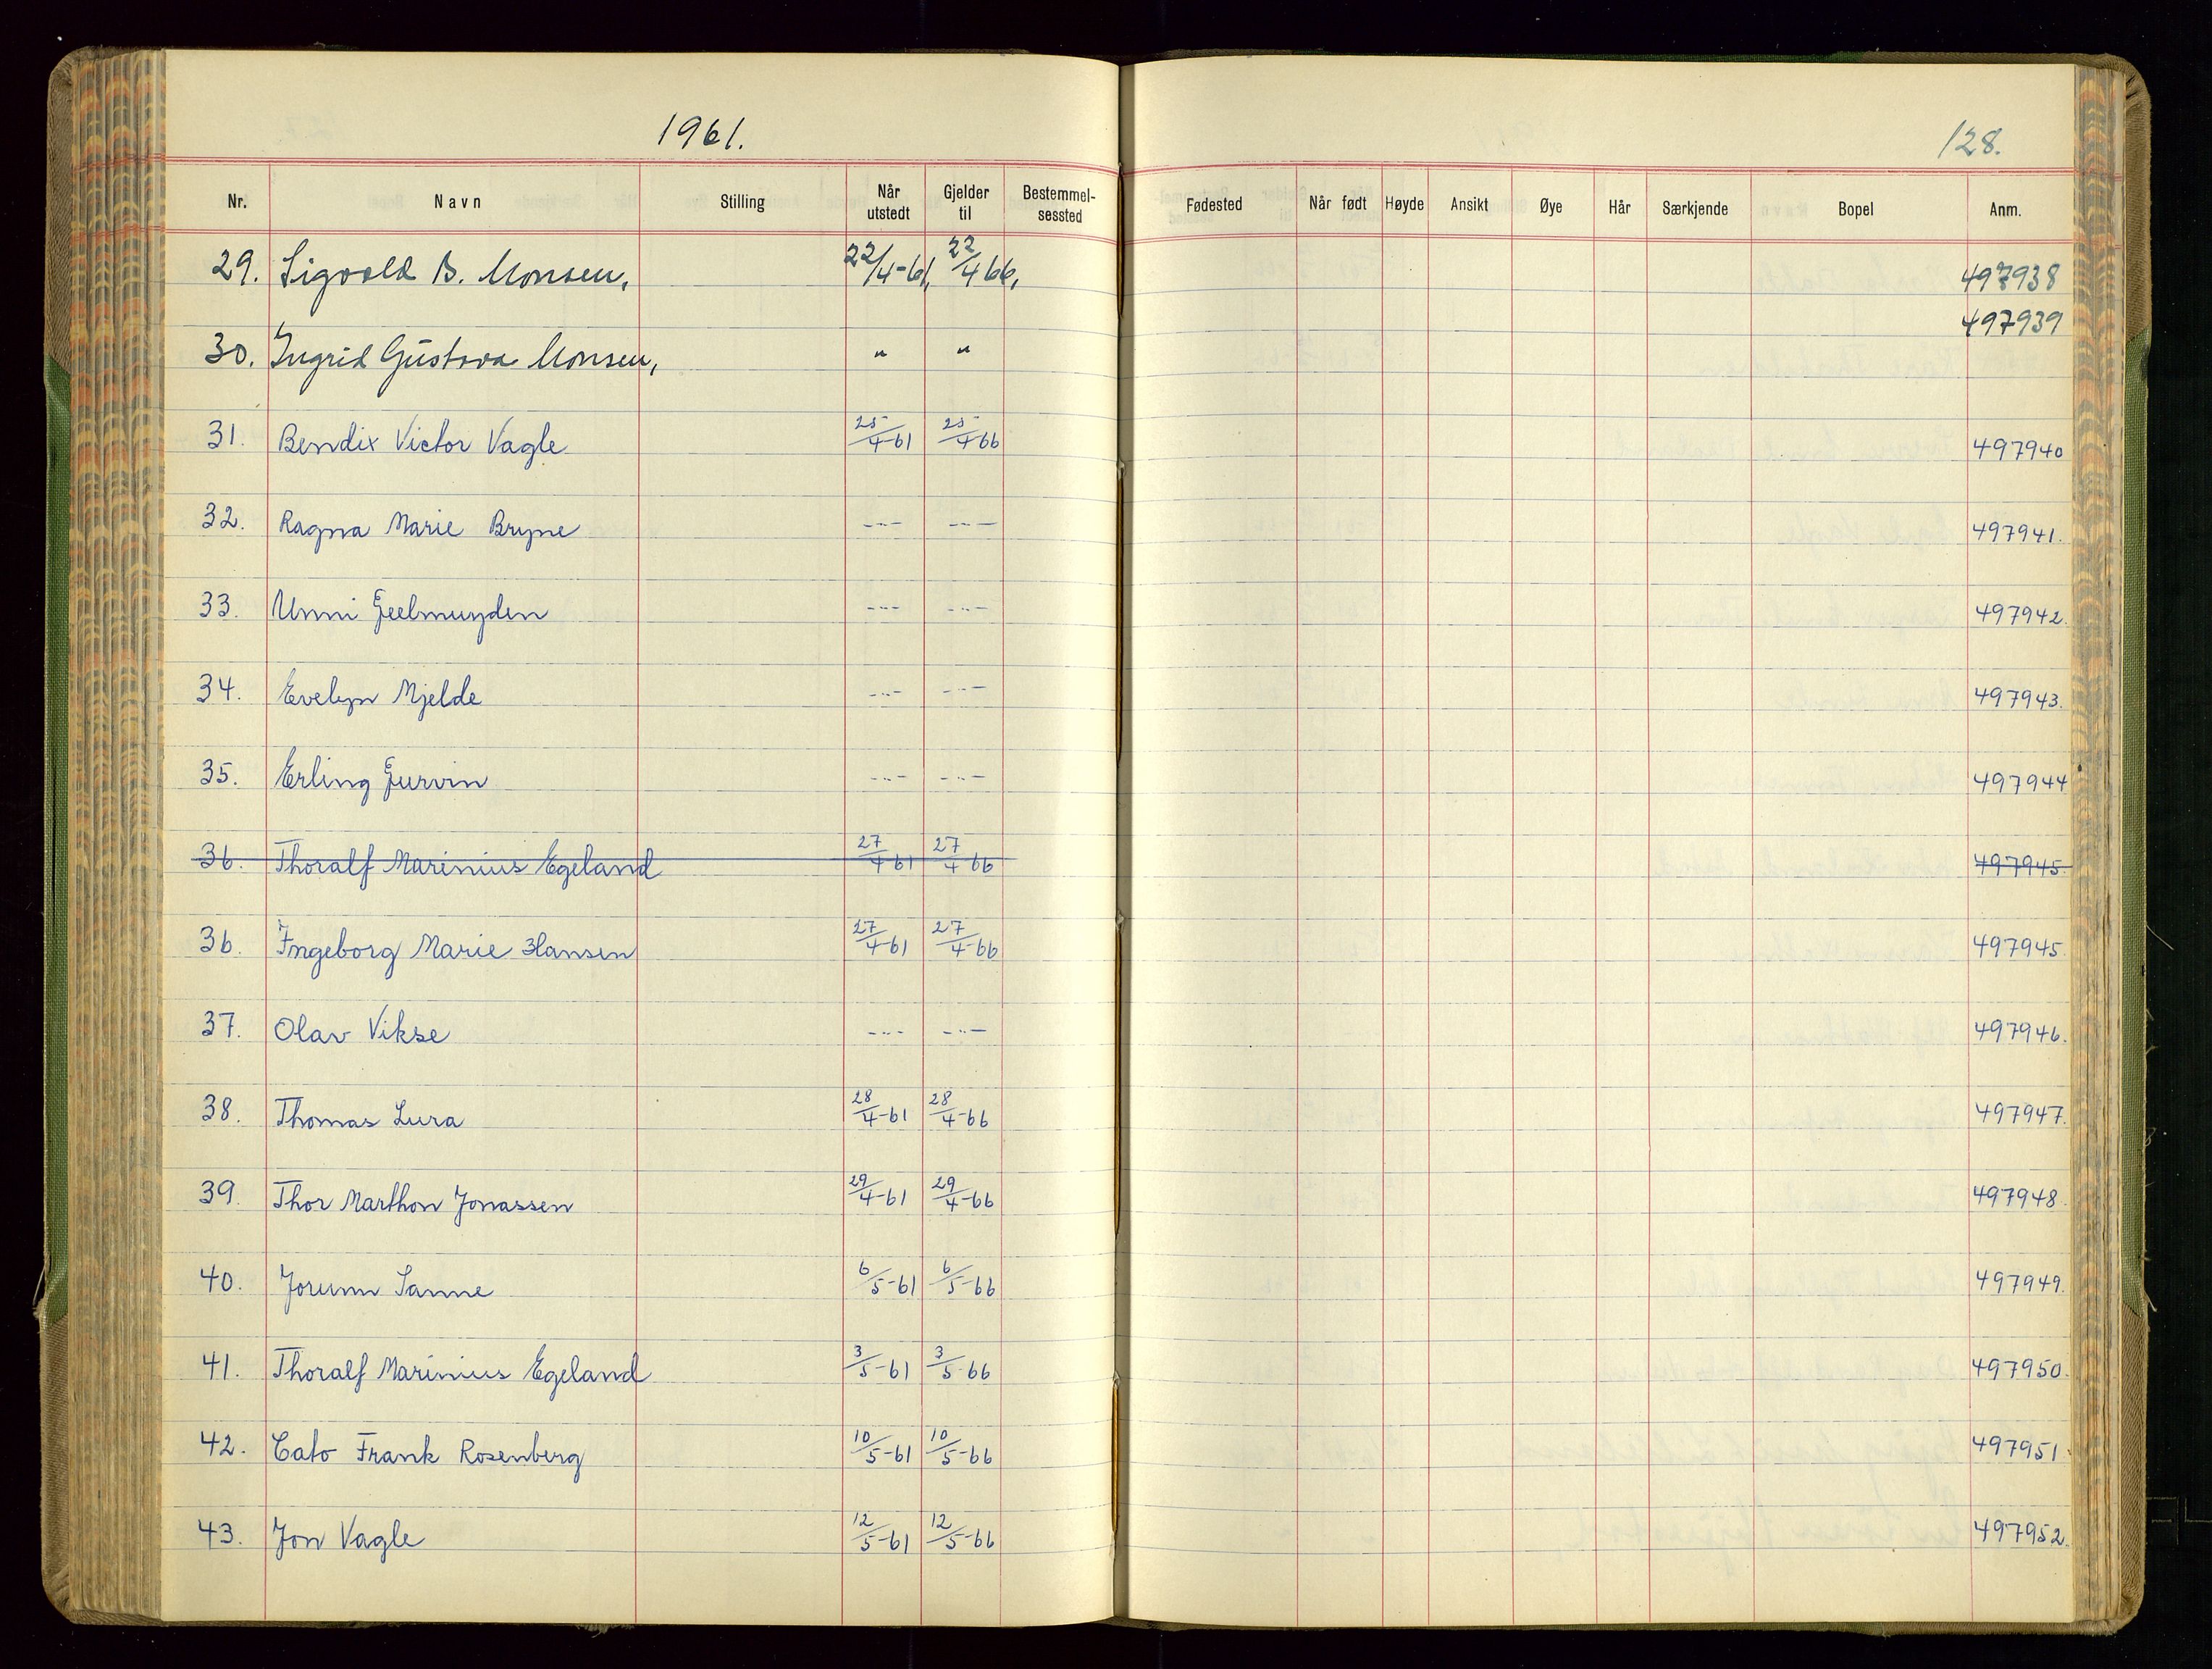 1961.
128.
Nr. Navn Stilling Når utstedt Gjelder til Bestemmel-sessted Fødested Når født Høyde Ansikt Øye Hår Særkjende Bopel Anm.
29. Sigvald B. Monsen, 22/4-61, 22/4 66, 497938
30. Ingrid Gustava Monsen, " " 497939
31. Bendix Victor Vagle 25/4-61 25/4-66 497940
32. Ragna Marie Bryne -"- -"- 497941.
33. Unni Geelmuyden -"- -"- 497942.
34. Evelyn Mjelde -"- -"- 497943.
35. Erling Gurvin -"- -"- 497944
36. Thoralf Marinius Egeland 27/4-61 27/4-66 497945.
36. Ingeborg Marie Hansen 27/4-61 27/4-66 497945.
37. Olav Vikse -"- -"- 497946.
38. Thomas Lura 28/4-61 28/4-66 497947.
39. Thor Marthon Jonassen 29/4-61 29/4-66 497948.
40. Jorunn Sanne 6/5-61 6/5-66 497949.
41. Thoralf Marinius Egeland 3/5-61 3/5-66 497950.
42. Cato Frank Rosenberg 10/5-61 10/5-66 497951.
43. Jon Vagle 12/5-61 12/5-66 497952.